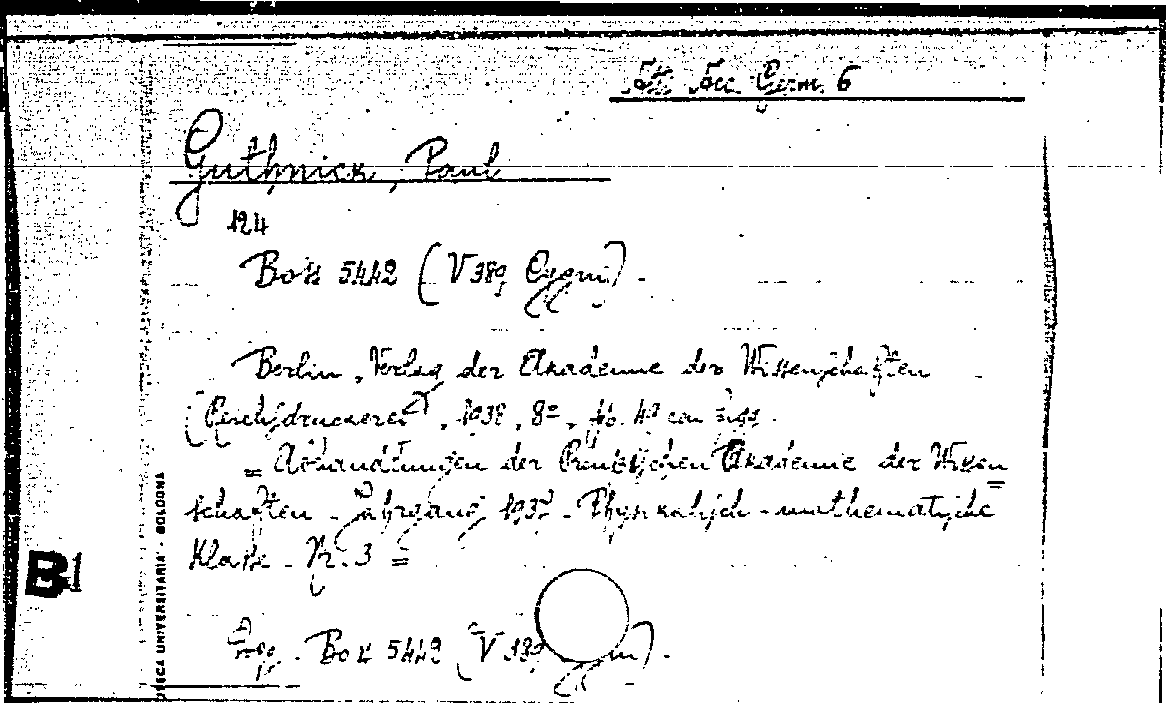 Germ. 6
Guthnick, Paul
124
Boss 5442 (V 389 Cygni).
Berlin, Verlag der Akademie der Wissenschaften
(Reichsdruckerei), 1938, 8º, pp. 49 con figg.
= Abhandlungen der Preussischen Akademie der Wissen=
schaften - Jahrgang 1937 - Physikalisch-mathematische
Klasse - Nr. 3 =
Boss 5442 (V 389 Cygni).
B1
UNIVERSITARIA - BOLOGNA